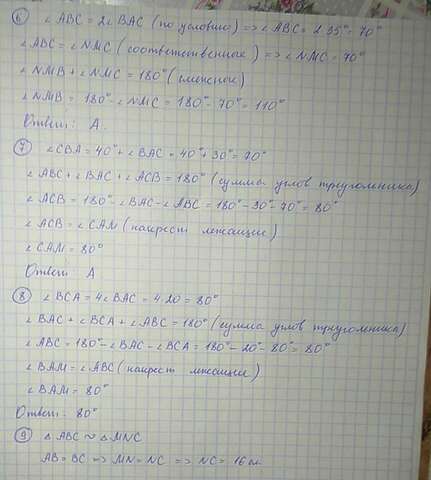 ⑥ ∠ABC = 2∠BAC (по условию) => ∠ABC = 2·35° = 70°
∠ABC = ∠NMC (соответственные) => ∠NMC = 70°
∠NMB + ∠NMC = 180° (смежные)
∠NMB = 180° - ∠NMC = 180° - 70° = 110°
Ответ: А.
⑦ ∠CBA = 40° + ∠BAC = 40° + 30° = 70°
∠ABC + ∠BAC + ∠ACB = 180° (сумма углов треугольника)
∠ACB = 180° - ∠BAC - ∠ABC = 180° - 30° - 70° = 80°
∠ACB = ∠CAM (накрест лежащие)
∠CAM = 80°
Ответ: А
⑧ ∠BCA = 4∠BAC = 4·20 = 80°
∠BAC + ∠BCA + ∠ABC = 180° (сумма углов треугольника)
∠ABC = 180° - ∠BAC - ∠BCA = 180° - 20° - 80° = 80°
∠BAM = ∠ABC (накрест лежащие)
∠BAM = 80°
Ответ: 80°
⑨ △ABC ≈ △MNC
AB = BC => MN = NC => NC = 16 см